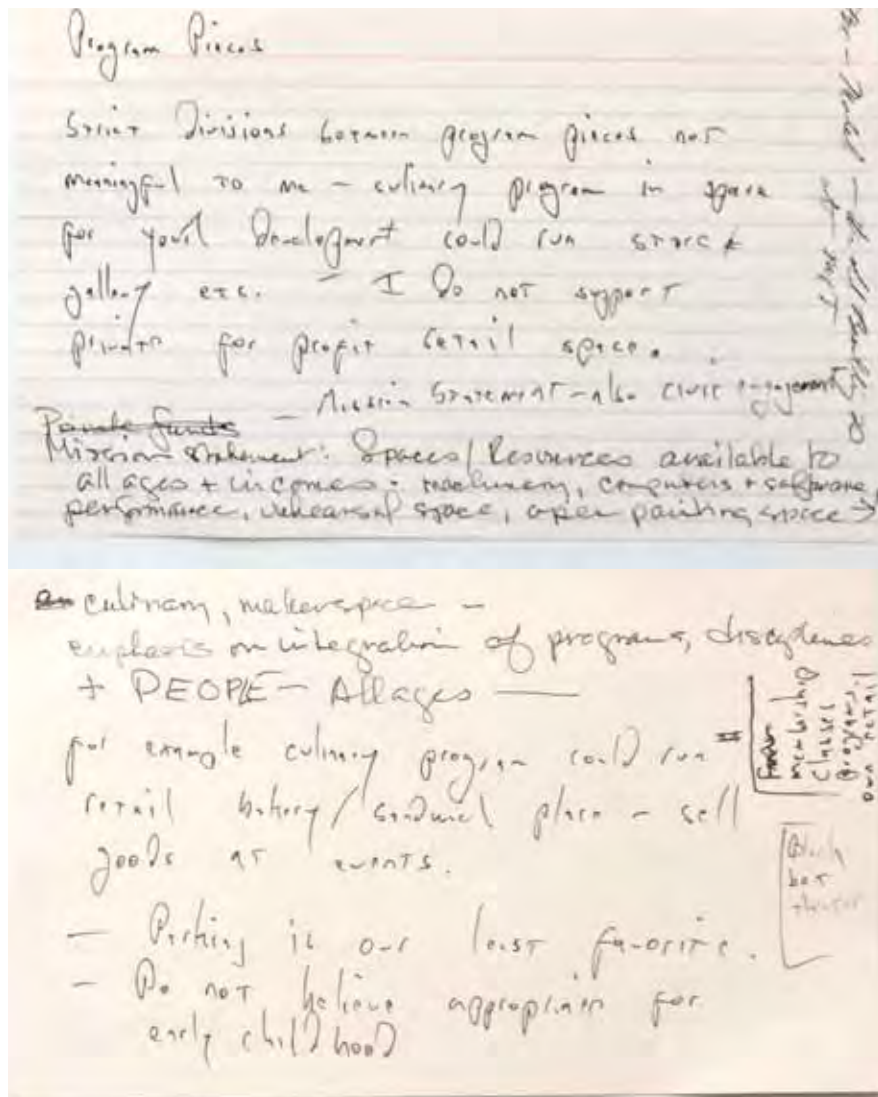 Program Pieces
Strict Divisions between program pieces not
meaningful to me - culinary program in space
for youth Development could run store &
gallery etc. - I do not support
private for profit retail space.
- Mission Statement - also civic engagement
Private funds
Mission statement: Spaces/Resources available to
all ages + incomes - machinery, computers + software,
performance, rehearsal space, open painting space →
culinary, makerspace -
emphasis on integration of programs, disciplines
+ PEOPLE - All ages
for example culinary program could run
retail bakery/sandwich place - sell
goods at events.
membership
classes
programs.
own retail
Black
box
theater
- Parking is our least favorite.
- Do not believe appropriate for
early childhood